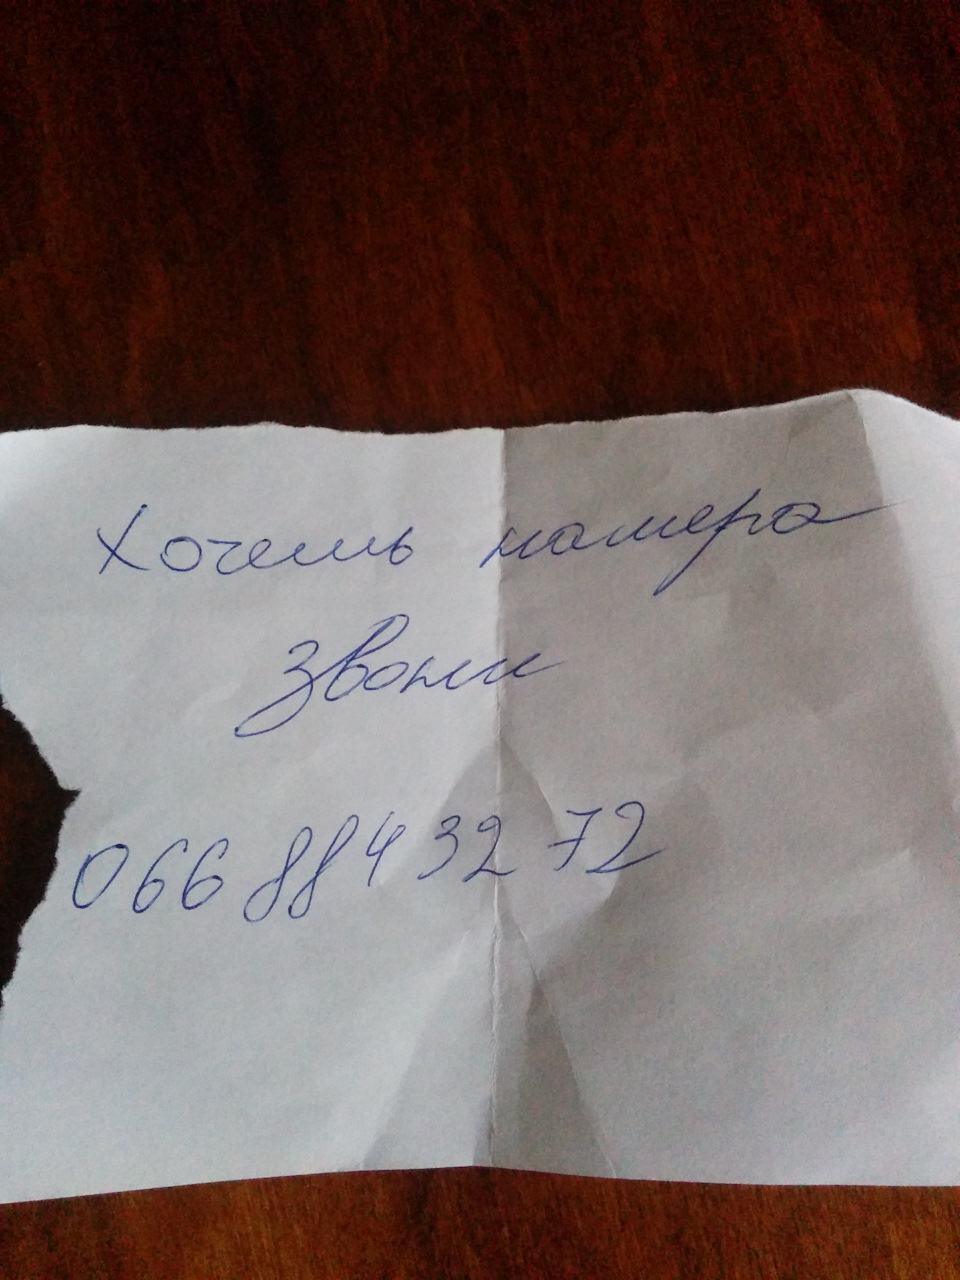 Хочешь намера
звони
066 884 32 72